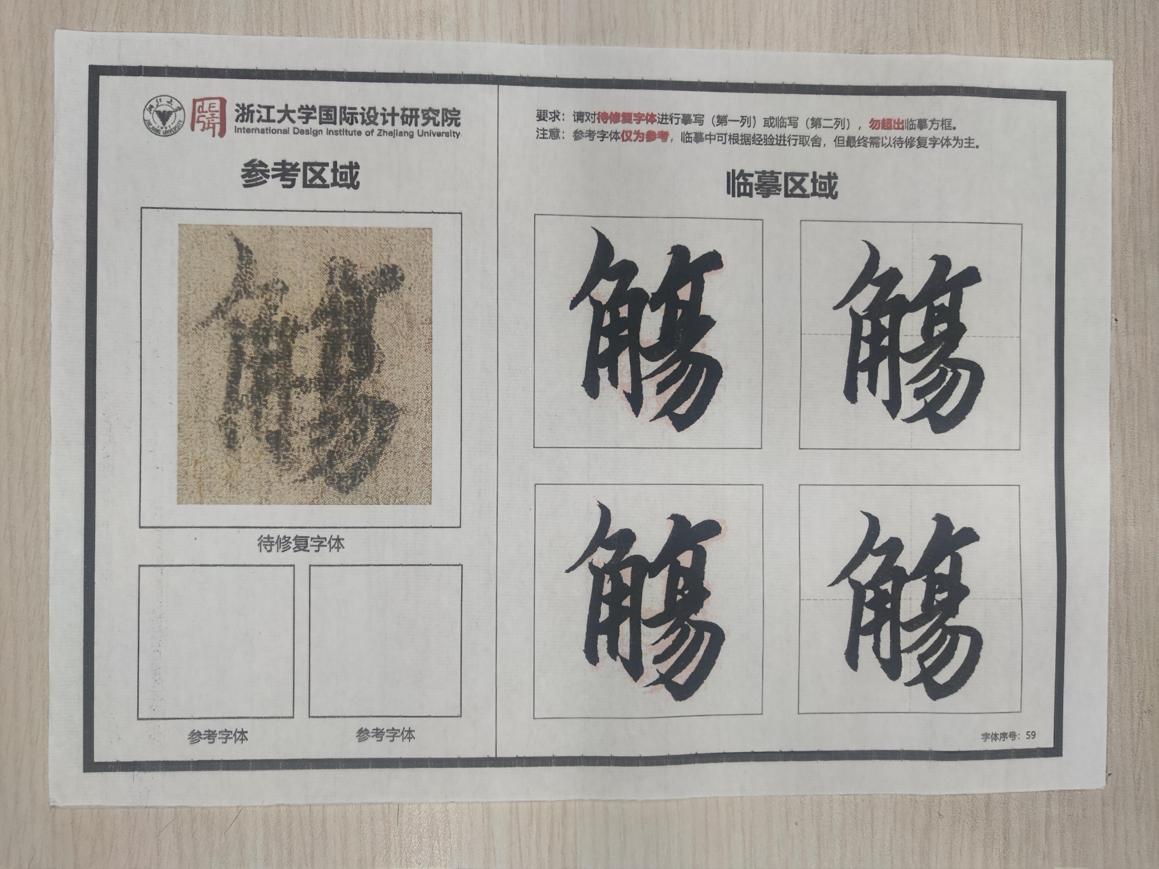 浙江大学国际设计研究院
International Design Institute of Zhejiang University
参考区域
觴
待修复字体
参考字体 参考字体
要求：请对待修复字体进行摹写（第一列）或临写（第二列），勿超出临摹方框。
注意：参考字体仅为参考，临摹中可根据经验进行取舍，但最终需以待修复字体为主。
临摹区域
觴 觴
觴 觴
字体序号：59